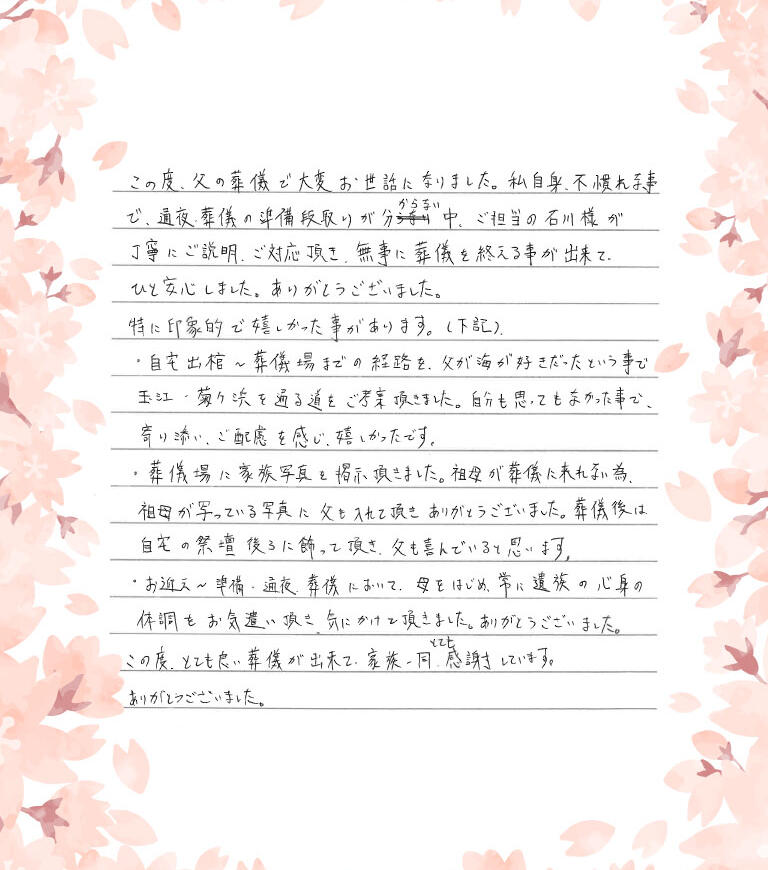 この度、父の葬儀で大変お世話になりました。私自身、不慣れな事
で、通夜、葬儀の準備段取りが分からない中、ご担当の石川様が
丁寧にご説明、ご対応頂き、無事に葬儀を終える事が出来て、
ひと安心しました。ありがとうございました。
特に印象的で嬉しかった事があります。(下記)。
・自宅出棺～葬儀場までの経路を、父が海が好きだったという事で
玉江・菊ヶ浜を通る道をご考案頂きました。自分も思ってもなかった事で、
寄り添い、ご配慮を感じ、嬉しかったです。
・葬儀場に家族写真を掲示頂きました。祖母が葬儀に来れない為、
祖母が写っている写真に父も入れて頂きありがとうございました。葬儀後は
自宅の祭壇後ろに飾って頂き、父も喜んでいると思います。
・お迎え～準備・通夜、葬儀において、母をはじめ、常に遺族の心身の
体調をお気遣い頂き、気にかけて頂きました。ありがとうございました。
この度、とても良い葬儀が出来て、家族一同、とても感謝しています。
ありがとうございました。